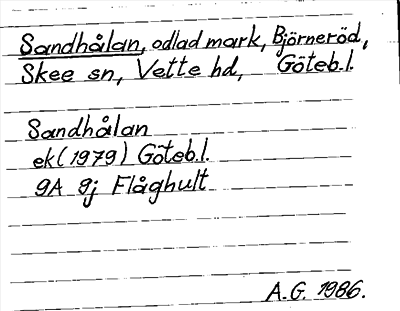 Sandhålan, odlad mark, Björneröd,
Skee sn, Vette hd, Göteb.l.
Sandhålan
ek (1979) Göteb.l.
9A 9j Flåghult
A.G. 1986.